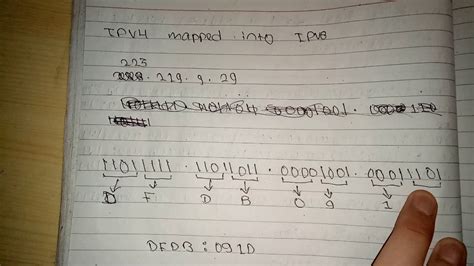 IPV4 mapped into IPV6
223
. 219. 9. 29
11011111 . 11011011 . 00001001 . 00011101
D F D B 0 9 1
DFDB : 091D